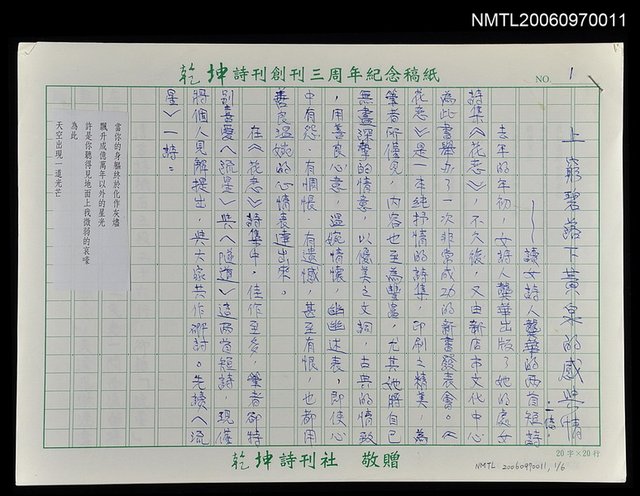 NMTL20060970011
乾坤詩刊創刊三周年紀念稿紙
NO. 1
上窮碧落下黃泉的感與情
——讀女詩人龔華的兩首短詩
一信
去年的年初,女詩人龔華出版了她的處女
詩集《花戀》,不久後,又由新店市文化中心
為此書舉辦了一次非常成功的新書發表會。《
花戀》是一本純抒情的詩集,印刷之精美為
筆者所僅見,內容也至為豐富,尤其她將自己
無盡深摯的情意,以優美之文詞,古典的情致
,用善良心意,溫婉情懷幽幽述表,即使心
中有怨、有惆悵、有遺憾,甚至有恨,也都用
善良溫婉的心情表達出來。
在《花戀》詩集中,佳作至多,筆者卻特
別喜愛〈流星〉與〈隨遊〉這兩首短詩,現僅
將個人見解提出,與大家共作研討。先讀〈流
星〉一詩:
當你的身軀終於化作灰燼
飄升成億萬年以外的星光
許是你聽得見地面上我微弱的哀嚎
為此
天空出現一道光芒
20字×20行
乾坤詩刊社 敬贈
NMTL 20060970011, 1/6